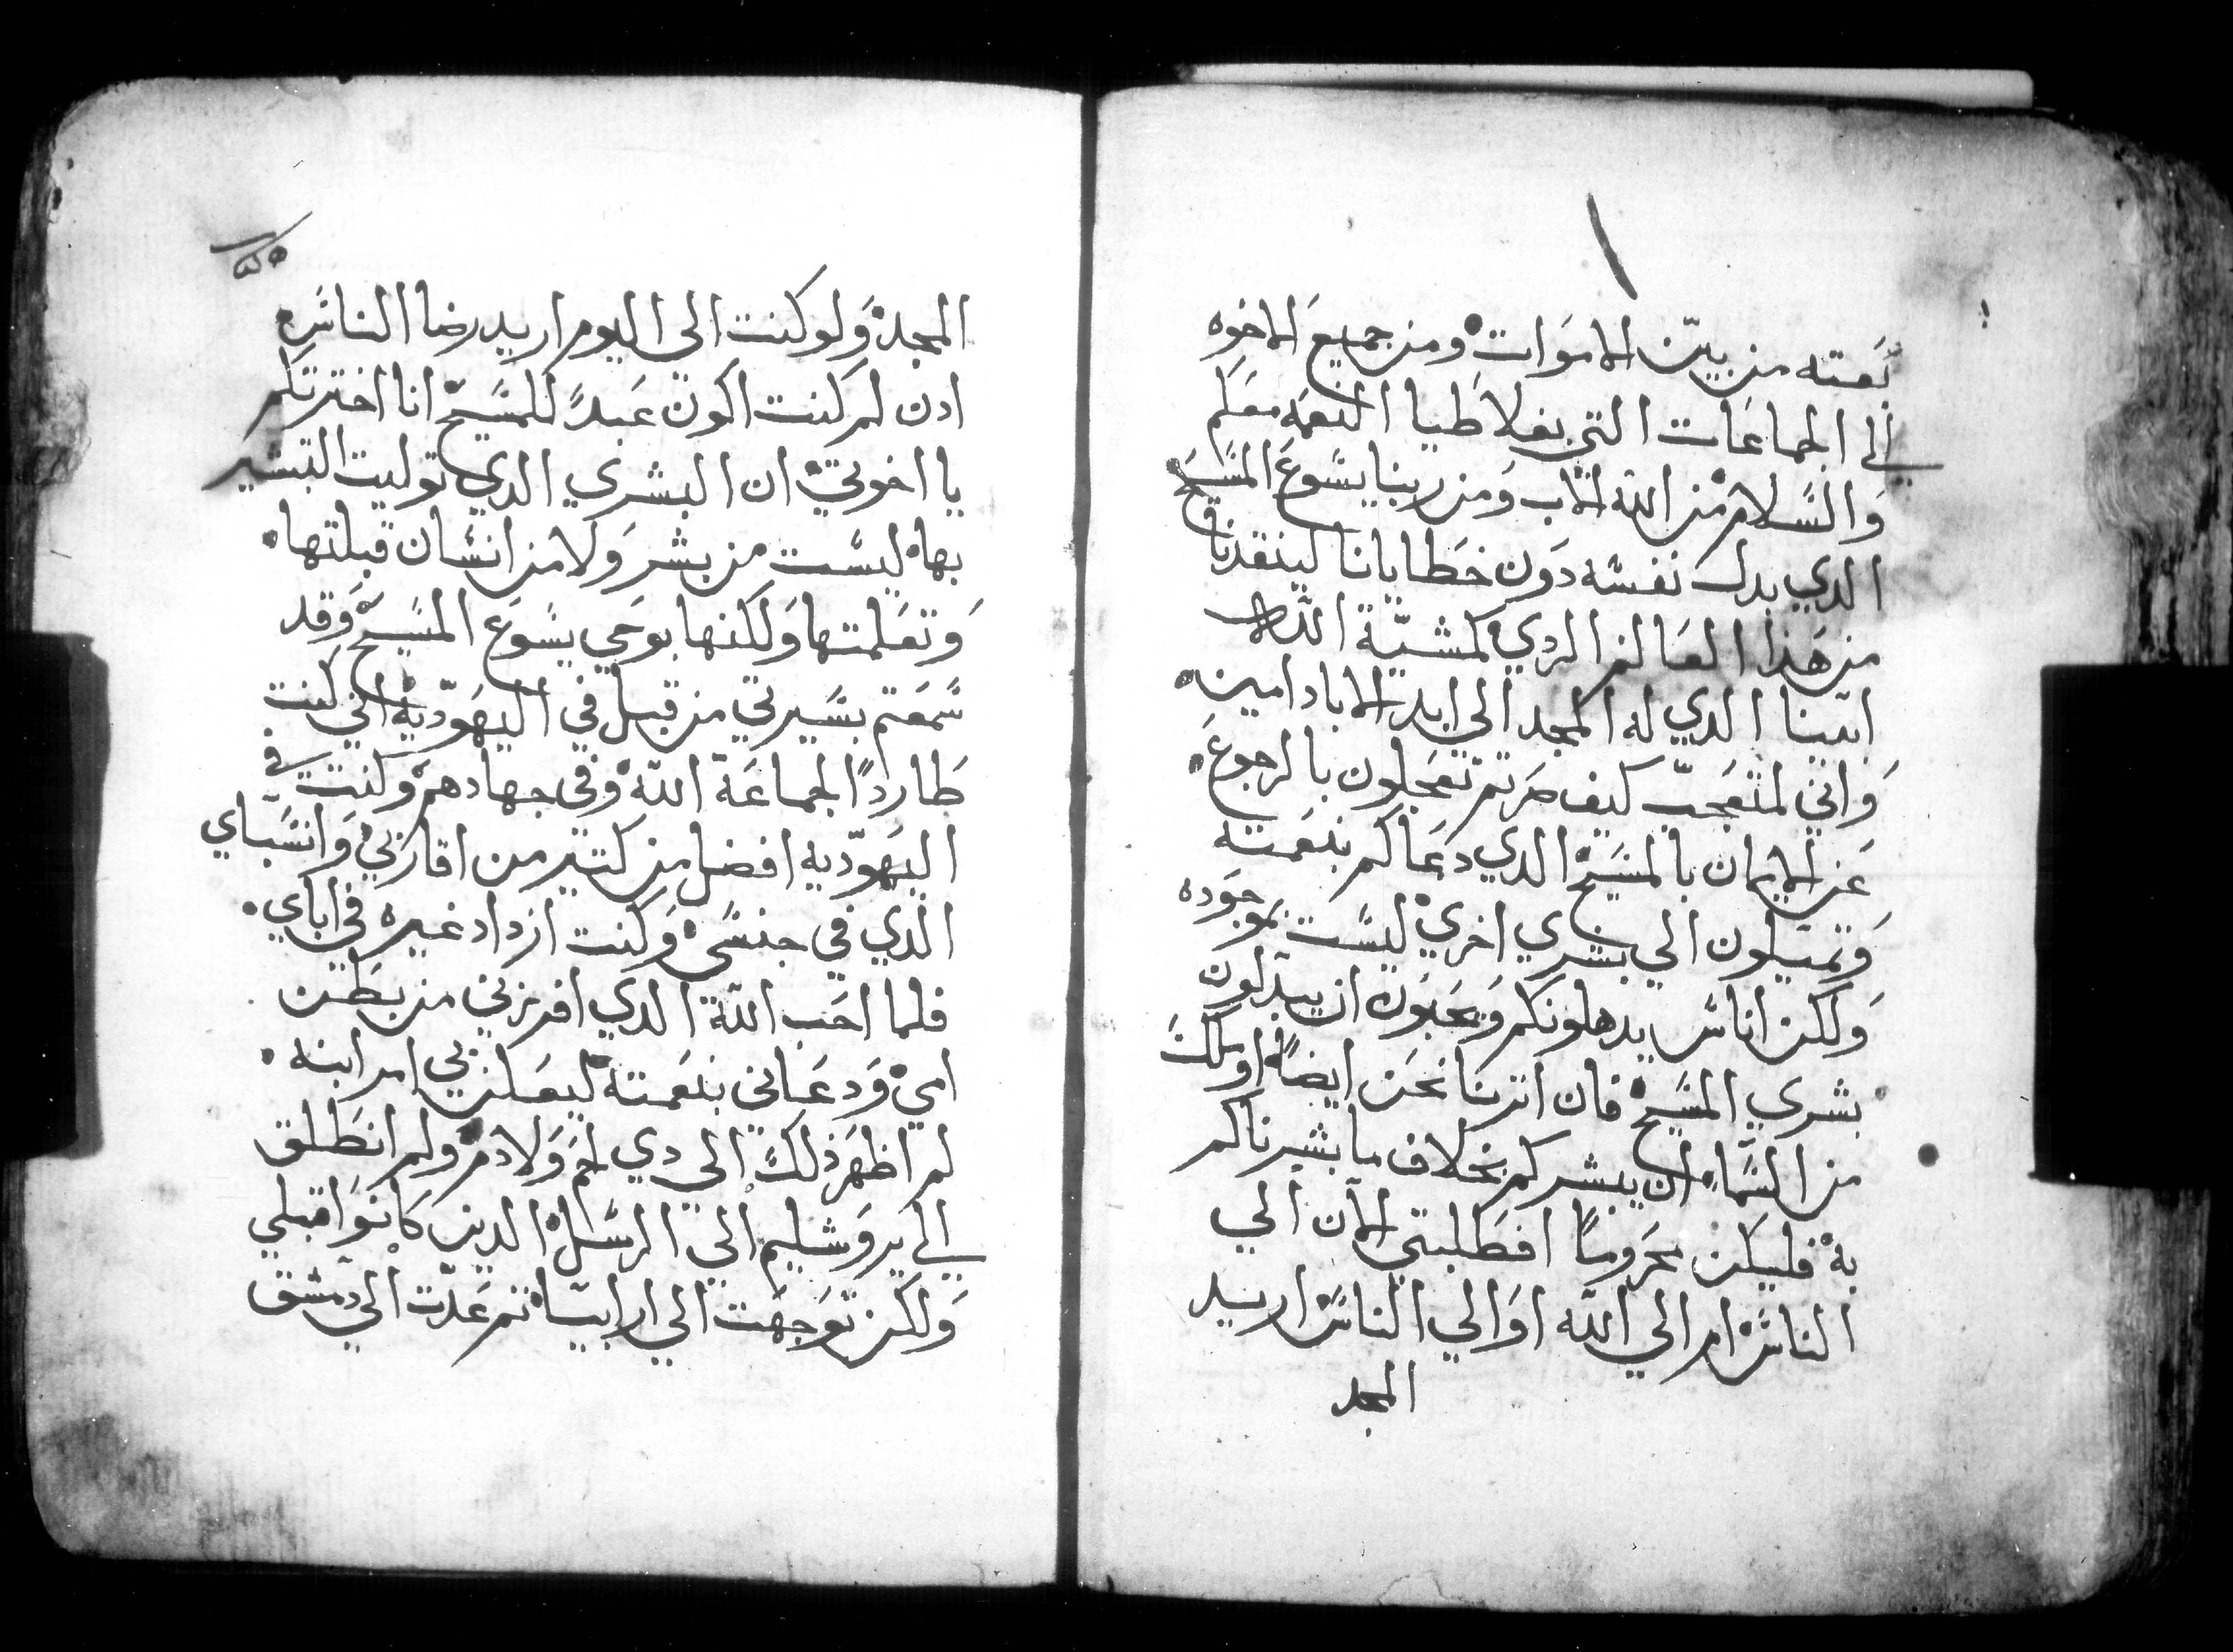 بَعَته من بين الاموَات ومن جميع الاخوه
الى الجماعَات التي بغلاطيا النعمه معَكم
وَالسَّلام من الله الاب وَمن ربنا يسَوع المسَيح
الدي بدل نفسَه دوَن خطايانا لينقدنا
من هَذا العَالم الردي كمشيّة اللاه
ابينا الدي له المجد الي ابد الاباد امين
وَاني لمتعَجبّ كيف صَرتم تعَجلون بالرجوع
عَن الايمان بالمسَيح الدي دعَاكم بنعَمته
وَتميَلون الي بشري اخري ليسَت بموجوَده
وَلكن اناسَ يدهلونكم وَيحَبوَن ان يبدلون
بشري المسَيح فان اترنا نحَن ايضاً اوملك
من السَّماء ان يبشركم بخلاف ما بشرناكم
به فليكن محَروماً افطَلبتي الان الي
الناسَ ام الي الله اوَالي الناسَ اريد
المجد
المجد وَلو كنت الي اليوم اريد رضا الناسَ
ادن لم كنت اكون عَبدً للمسَيح انا اخترتكم
يا اخوتي ان البشري الدي توليت التبشير
بها ليسَت من بشر وَلا من انسَان قبلتها
وَتعَلمتها وَلكنها بوحَي يسَوع المسَيح وَقد
سَمعَتم بسَيرتي من قبل في اليهوَديّه اني كنت
طَارداً لجماعَة الله وفي جهادهم وَكنت في
اليهَوديه افضل من كتير من اقاربي وَانسَباي
الدي في جنسَي وَكنت ازداد غيره في اباي
فلما احَب الله الدي افرزني من بطَن
امي وَدعَاني بنعَمته ليعَلن بي امر ابنه
لم اظهَر ذلك الي دي لحَم وَلا دم ولم انطَلق
الي يروَشليم الي الرسَل الدين كانوَا قبلي
وَلكن توَجهَت الي ارابيَا تم عَدت الي دمشق